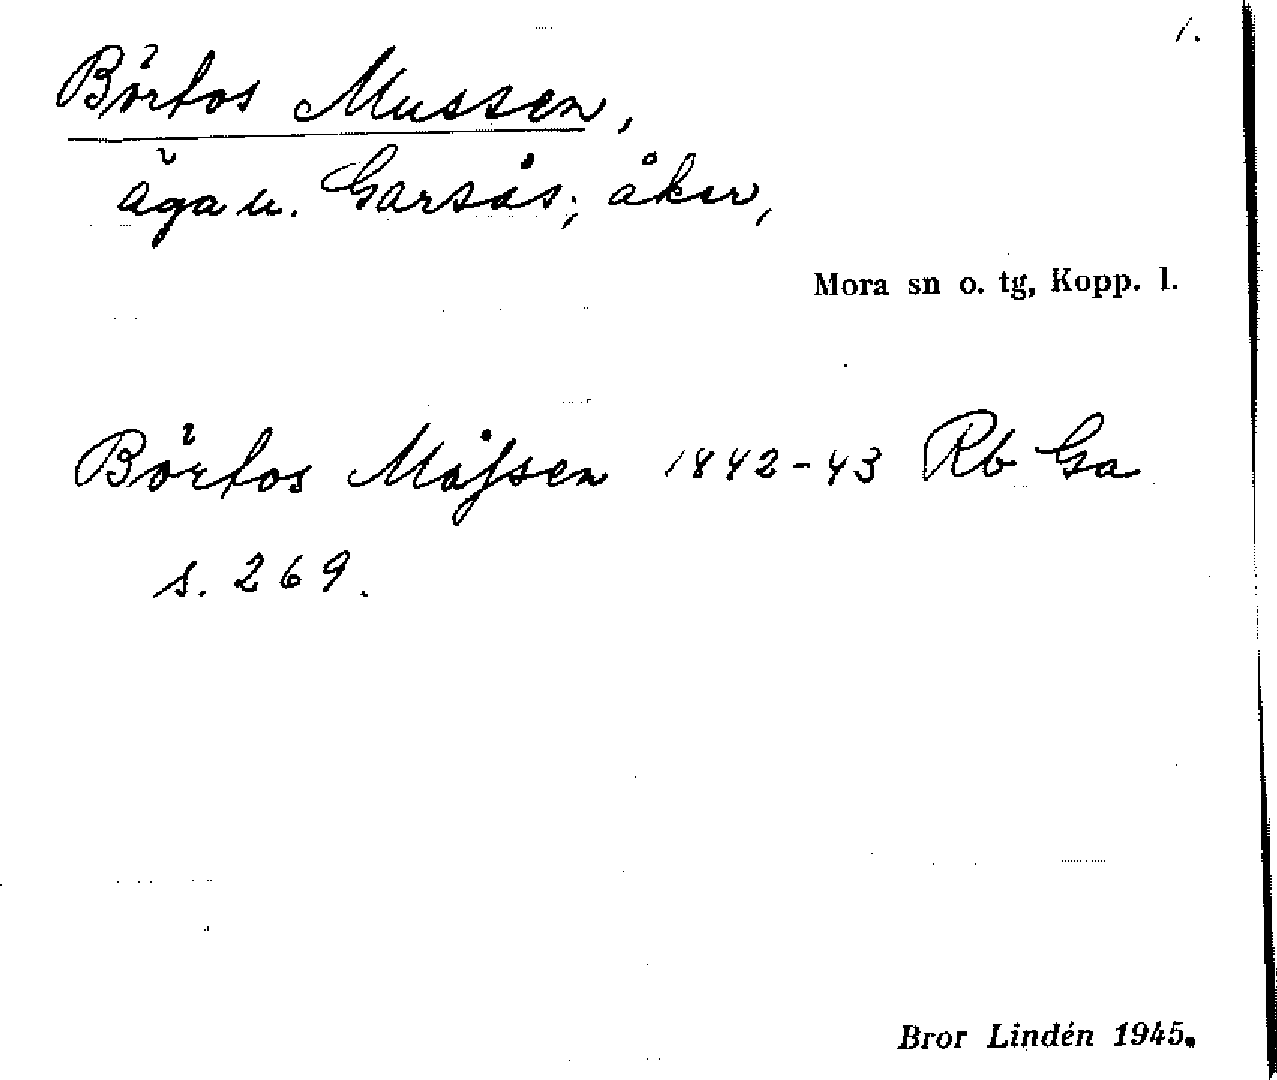 1.
Börtos Mussen,
äga u. Garsås; åker,
Mora sn o. tg, Kopp. l.
Börtos Måssen 1842-43 Rb Ga
s. 269.
Bror Lindén 1945.